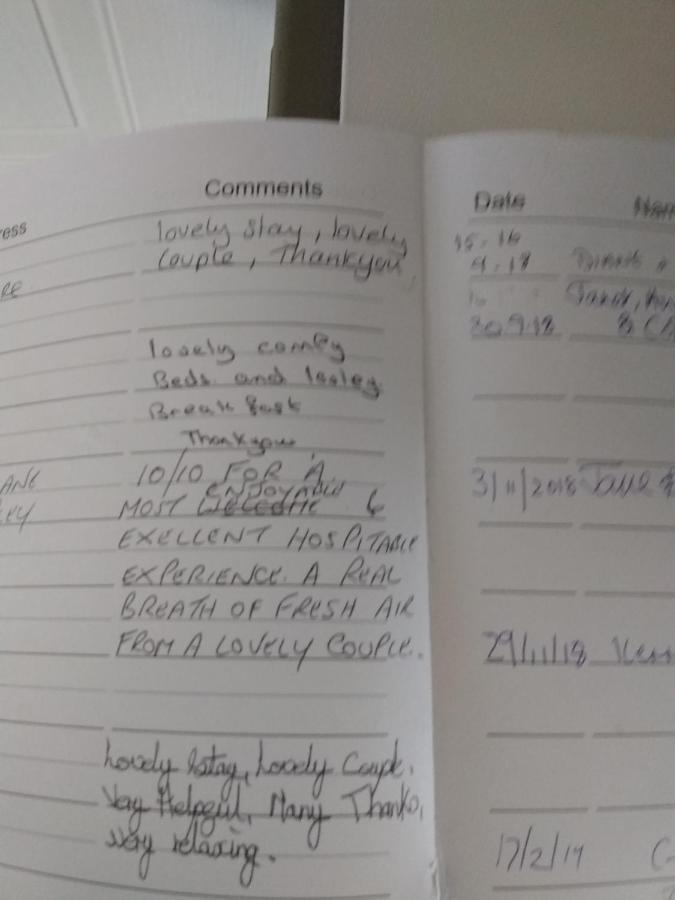 Comments
ress
lovely stay, lovely
couple, Thankyou
RE
lovely comfy
Beds and
Breakfast
Thankyou
10/10 FOR A
ENJOYABLE
MOST &
EXELLENT HOSPITABLE
EXPERIENCE. A REAL
BREATH OF FRESH AIR
FROM A LOVELY COUPLE.
Lovely Stay, Lovely Couple.
Very Helpful, Many Thanks,
very relaxing.
Date Nam
15.16
9.18
30.9.18 &
31/11/2018
29/11/18
17/2/19 C